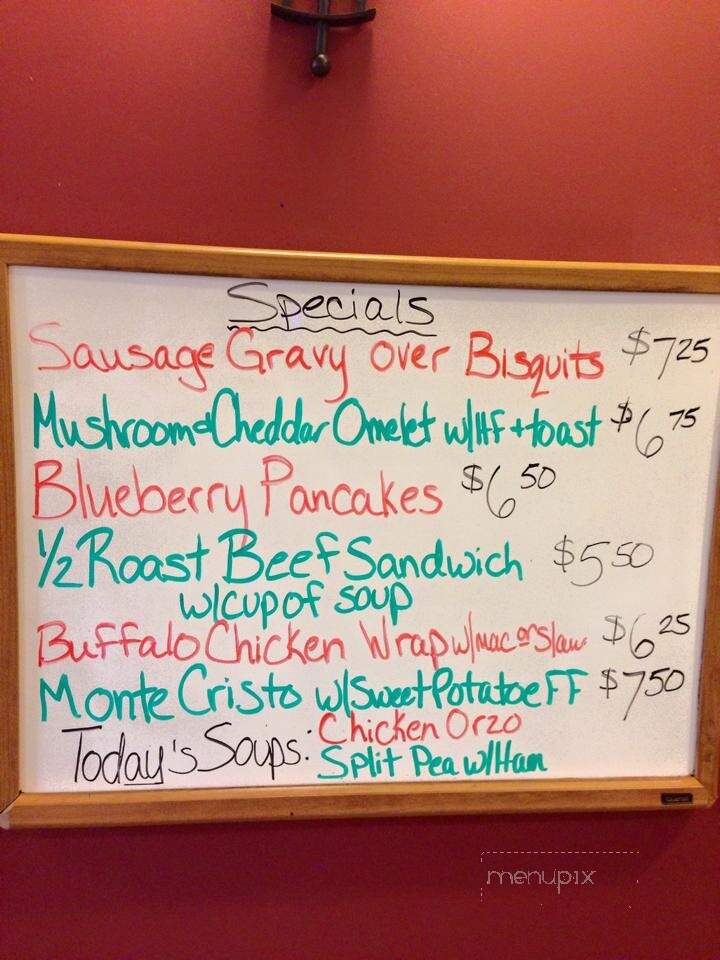 Specials
Sausage Gravy over Bisquits $7 25
Mushroom & Cheddar Omelet w/HF + toast $6 75
Blueberry Pancakes $6 50
1/2 Roast Beef Sandwich $5 50
w/cup of soup
Buffalo Chicken Wrap w/mac or slaw $6 25
Monte Cristo w/Sweet Potatoe FF $7 50
Today's Soups: Chicken Orzo
Split Pea w/Ham
menupix